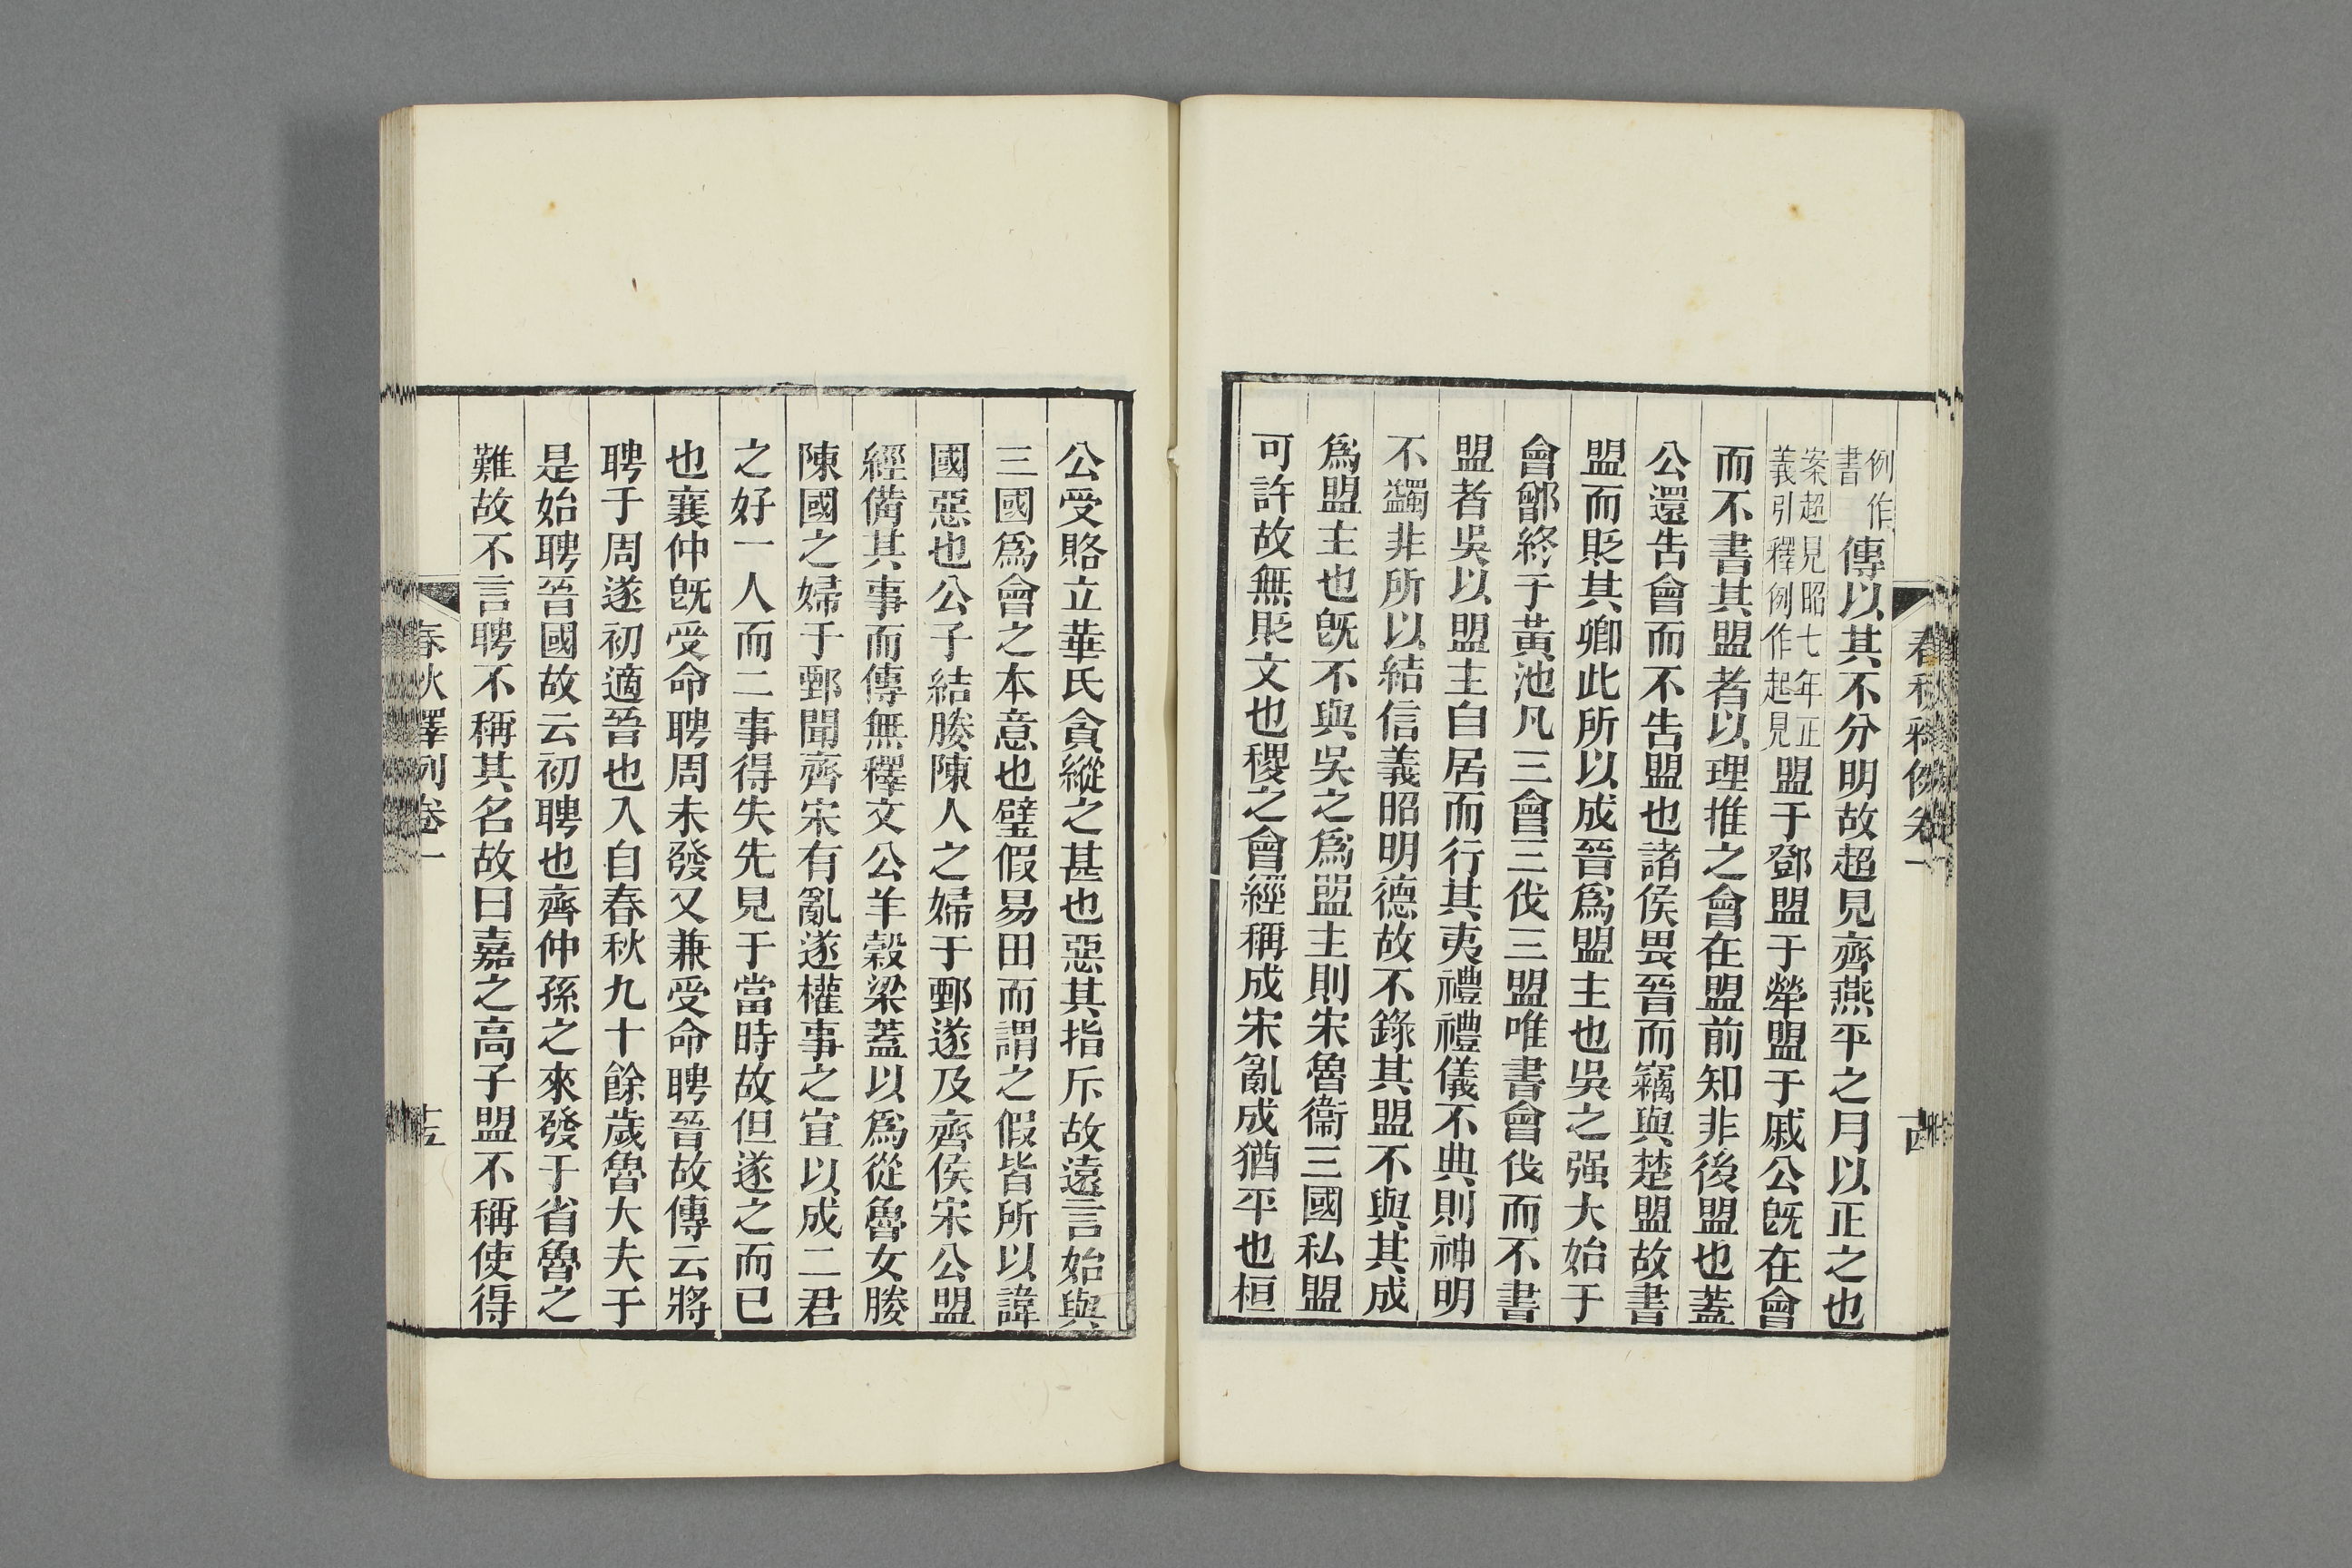 例作書傳以其不分明故超見齊燕平之月以正之也
案超見昭七年正義引釋例作起見盟于鄧盟于犖盟于戚公旣在會
而不書其盟者以理推之會在盟前知非後盟也蓋
公還告會而不告盟也諸侯畏晉而竊與楚盟故書
盟而貶其卿此所以成晉爲盟主也吳之强大始于
會鄫終于黃池凡三會三伐三盟唯書會伐而不書
盟者吳以盟主自居而行其夷禮禮儀不典則神明
不蠲非所以結信義昭明德故不錄其盟不與其成
爲盟主也旣不與吳之爲盟主則宋魯衞三國私盟
可許故無貶文也稷之會經稱成宋亂成猶平也桓
春秋釋例卷一
十四
公受賂立華氏貪縱之甚也惡其指斥故遠言始與
三國爲會之本意也璧假易田而謂之假皆所以諱
國惡也公子結媵陳人之婦于鄄遂及齊侯宋公盟
經備其事而傳無釋文公羊穀梁蓋以爲從魯女媵
陳國之婦于鄄聞齊宋有亂遂權事之宜以成二君
之好一人而二事得失先見于當時故但遂之而已
也襄仲旣受命聘周未發又兼受命聘晉故傳云將
聘于周遂初適晉也入自春秋九十餘歲魯大夫于
是始聘晉國故云初聘也齊仲孫之來發于省魯之
難故不言聘不稱其名故曰嘉之高子盟不稱使得
春秋釋例卷一
十五